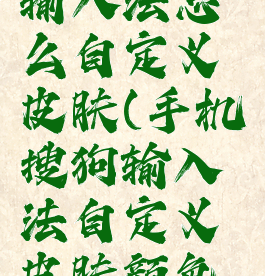 输入法怎
么自定义
皮肤(手机
搜狗输入
法自定义
皮肤颜色